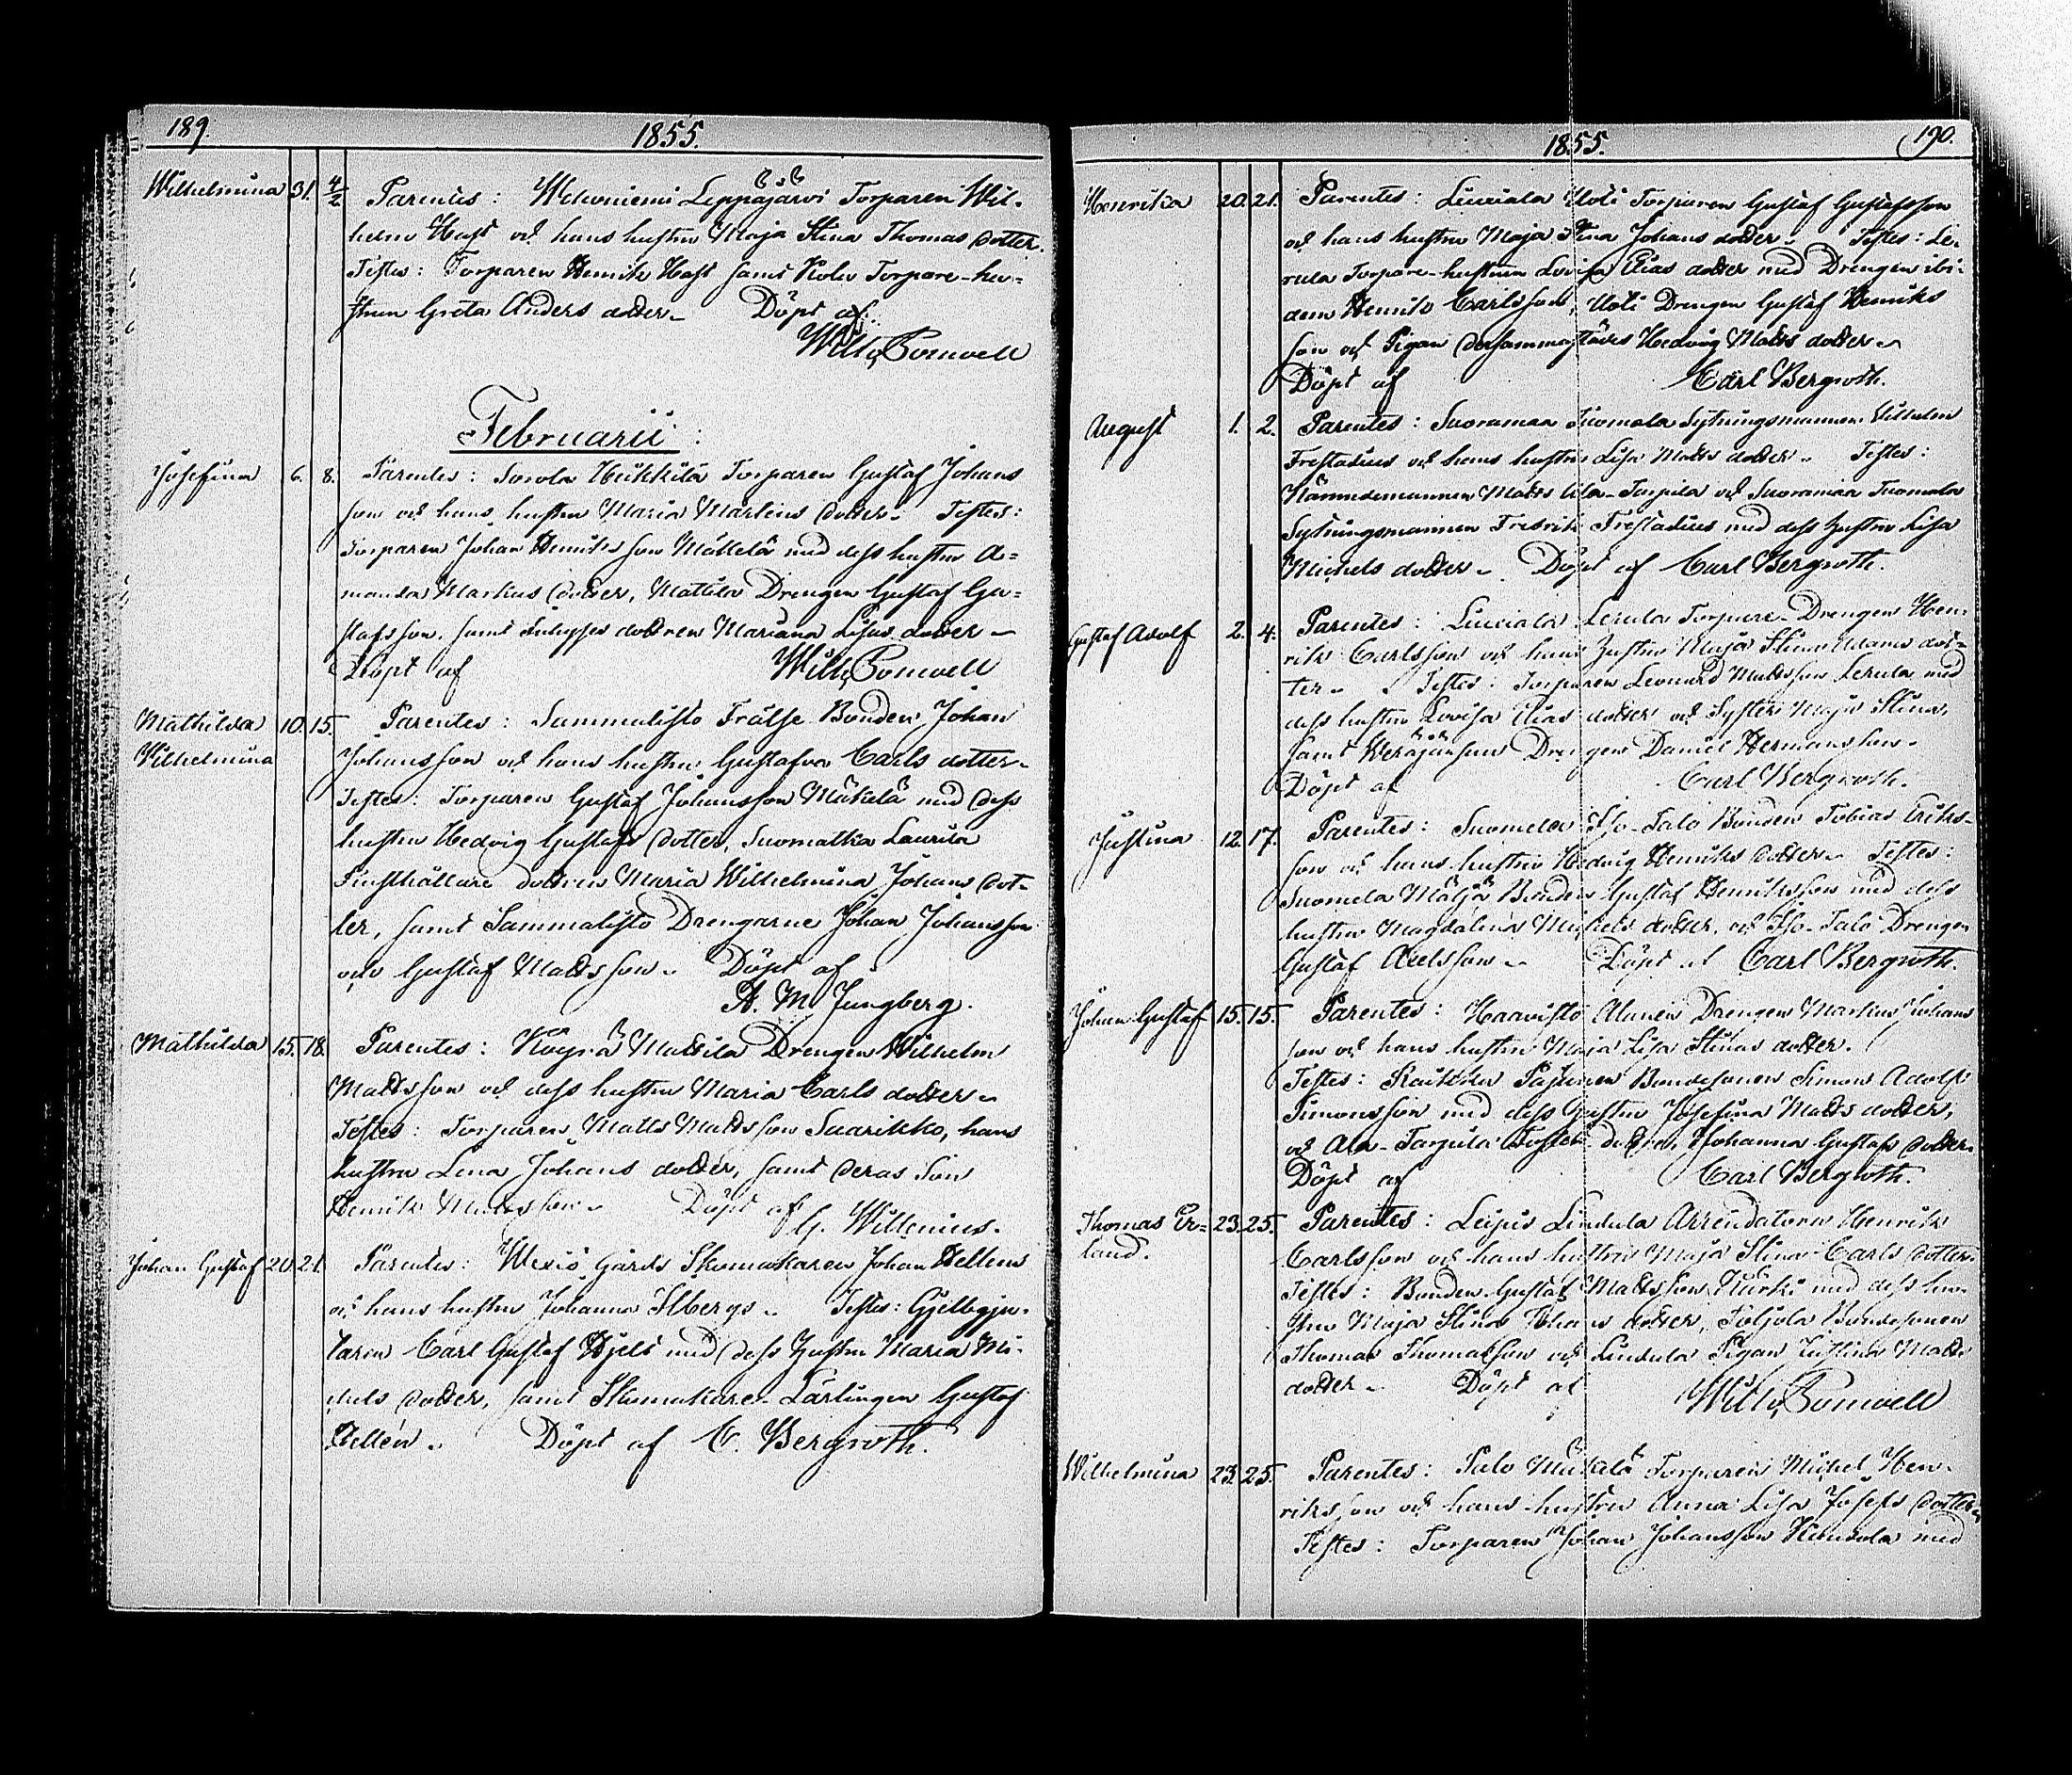 189.
1855.
Wilhelmina 31. 4/2 Parentes: Leppäjärvi Torparen Wil-
helm Hast och hans hustru Maja Stina Thomas dotter.
Testes: Torparen Henrik Hast samt Torpare-hu-
strun Greta Anders dotter. Döpt af
Februarii
Josefina 6. 8. Parentes: Sorola Heikkilä Torparen Gustaf Johans
son och hans hustru Maria Martens dotter. Testes:
Torparen Johan Henriksson Mäkelä med dess hustru A=
manda Markus dotter, Mattila Drengen Gustaf Gu=
stafsson, samt dottren Mariana Lisas dotter
Döpt af
Mathilda 10. 15. Parentes: Sammalisto Frälse Bonden Johan
Wilhelmina Johansson och hans hustru Gustafva Carls dotter.
Testes: Torparen Gustaf Johansson Mäkelä med dess
hustru Hedvig Gustafs dotter, Suomatka Laurila
dottren Maria Wilhelmina Johans dot-
ter, samt Sammalisto Drengarne Johan Johansson
och Gustaf Mattsson. Döpt af
A. M. Jungberg.
Mathilda 15. 18. Parentes: Köyrä Mattila Drengen Wilhelm
Mattsson och dess hustru Maria Carls dotter.
Testes: Torparen Matts Mattsson Suarikko, hans
hustru Lena Johans dotter, samt deras Son
Henrik Mattsson. Döpt af
G. Willenius.
Johan Gustaf 20. 21. Parentes: Gårds Skomakaren Johan Hellens
och hans hustru Johanna Ilbergs. Testes: Gjelbgju-
taren Carl Gustaf Hjelt med dess Hustru Maria Mi-
chels dotter, samt Skomakare-Lärlingen Gustaf
Hellén. Döpt af C. Bergroth.
190.
1855.
Henrika 20. 21. Parentes: Uoti Torparen Gustaf Gustafsson
och hans hustru Maja Stina Johans dotter. Testes: Le-
rula Torpare-hustrun Lovisa Elias dotter med Drengen ibi-
dem Henrik Carlsson, Uoti Drengen Gustaf Henriks
son och Pigan dersammastädes Hedvig Matts dotter.
Döpt af Carl Bergroth.
August 1. 2. Parentes: Suoramaa Tuomola Sytningsmannen Wilhelm
Frestadius och hans hustru Lisa Matts dotter. Testes:
Nämndemannen Matts Ala-Tarpila och Suoramaa Tuomola
Sytningsmannen Fredrik Frestadius med dess hustru Lisa
Michels dotter. Döpt af Carl Bergroth.
Gustaf Adolf 2. 4. Parentes: Lerula Torpare-Drengen Hen-
rik Carlsson och hans Hustru Maja Stina Adams dot-
ter. Testes: Torparen Leonard Mattsson Lerula med
dess hustru Lovisa Elias dotter och Syster Maja Stina,
samt Drengen Daniel Hermansson.
Döpt af Carl Bergroth.
Justina 12. 17. Parentes: Suomela Iso-Talo Bonden Tobias Eriks-
son och hans hustru Hedvig Henriks dotter. Testes:
Suomela Mäljä Bonden Gustaf Henriksson med dess
hustru Magdalena Michels dotter, och Iso-Talo Drengen
Gustaf Axelsson. Döpt af Carl Bergroth.
Johan Gustaf 15. 15. Parentes: Haavisto Alanen Drengen Markus Johans
son och hans hustru Maja Lisa Stinas dotter.
Testes: Pajunen Bondesonen Simon Adolf
Simonsson med dess Hustru Josefina Matts dotter,
och Ala-Tarpila dottren Johanna Gustafs dotter.
Döpt af Carl Bergroth.
Thomas Er= 23. 25. Parentes: Leipis Lindula Arrendatorn Henrik
land. Carlsson och hans hustru Maja Stina Carls dotter.
Testes: Bonden Gustaf Mattsson Kurki med dess hu-
stru Maja Stina Johans dotter, Bondesonen
Thomas Thomasson och Lindula Pigan Justina Matts
dotter. Döpt af
Wilhelmina 23. 25. Parentes: Salo Mäkelä Torparen Michel Hen-
riksson och hans hustru Anna Lisa Josefs dotter.
Testes: Torparen Johan Johansson med